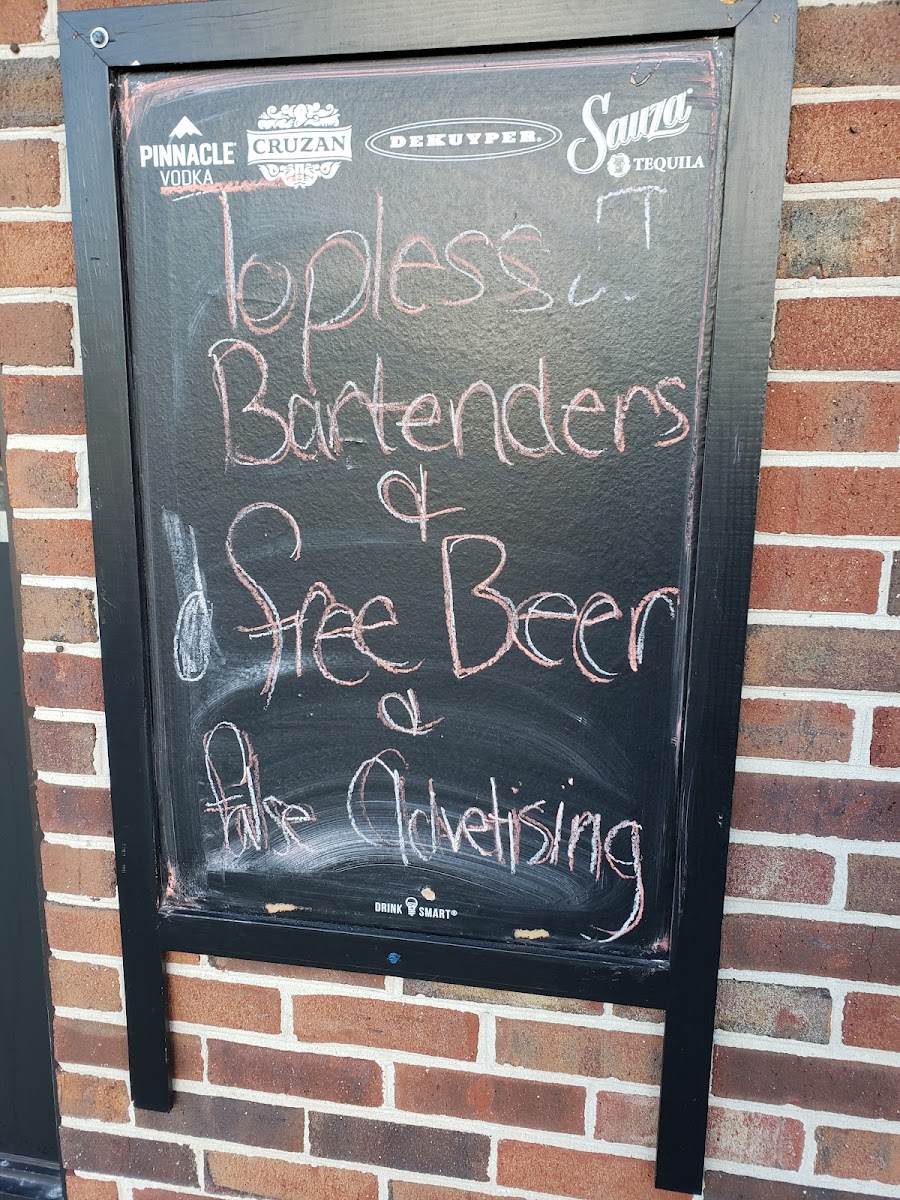 PINNACLE VODKA CRUZAN DEKUYPER Sauza TEQUILA
Topless
Bartenders
&
Free Beer
&
False Advertising
DRINK SMART